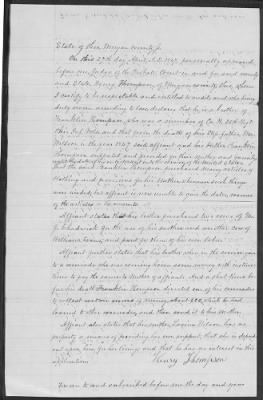 State of Ohio Morgan County ss.
On this 27th day April A.D. 1897, personally appeared
before me Judge of the Probate Court in and for said county
and State Henry Thompson, of Morgan county Ohio, whom
I certify to be respectable and entitled to credit and who being
duly sworn according to law, declares that he is a brother of
Franklin Thompson, who was a member of Co. H.
Ohio Inf. Vols and that from the death of his step father, Wm.
Wilson, in the year 1857 said affiant and his brother Franklin
Thompson supported and provided for their mother and
that the said Franklin Thompson purchased many articles of
clothing and provisions for his Mother whenever such things
were needed, but affiant is now unable to give the dates, names
of the articles or the amounts.
Affiant states that his brother purchased two cows of Wm
for the use of his mother and another cow of
William Ewing and paid for them by his own labor.
Affiant further states that his brother when in the army
to a comrade who was owing him some money with instruc-
tions to pay the same to Mother of affiant. And a short time be-
fore his death Franklin Thompson, directed one of his comrades
to collect certain sums of money, about $20, which he had
loaned to other comrades, and then send it to his mother.
Affiant also states that his mother, Lavina Wilson, has no
property or means of providing her own support, that she is depend-
ent upon him for her living and that he has no interest in this
application.
Henry Thompson
Sworn to and subscribed before me the day and year